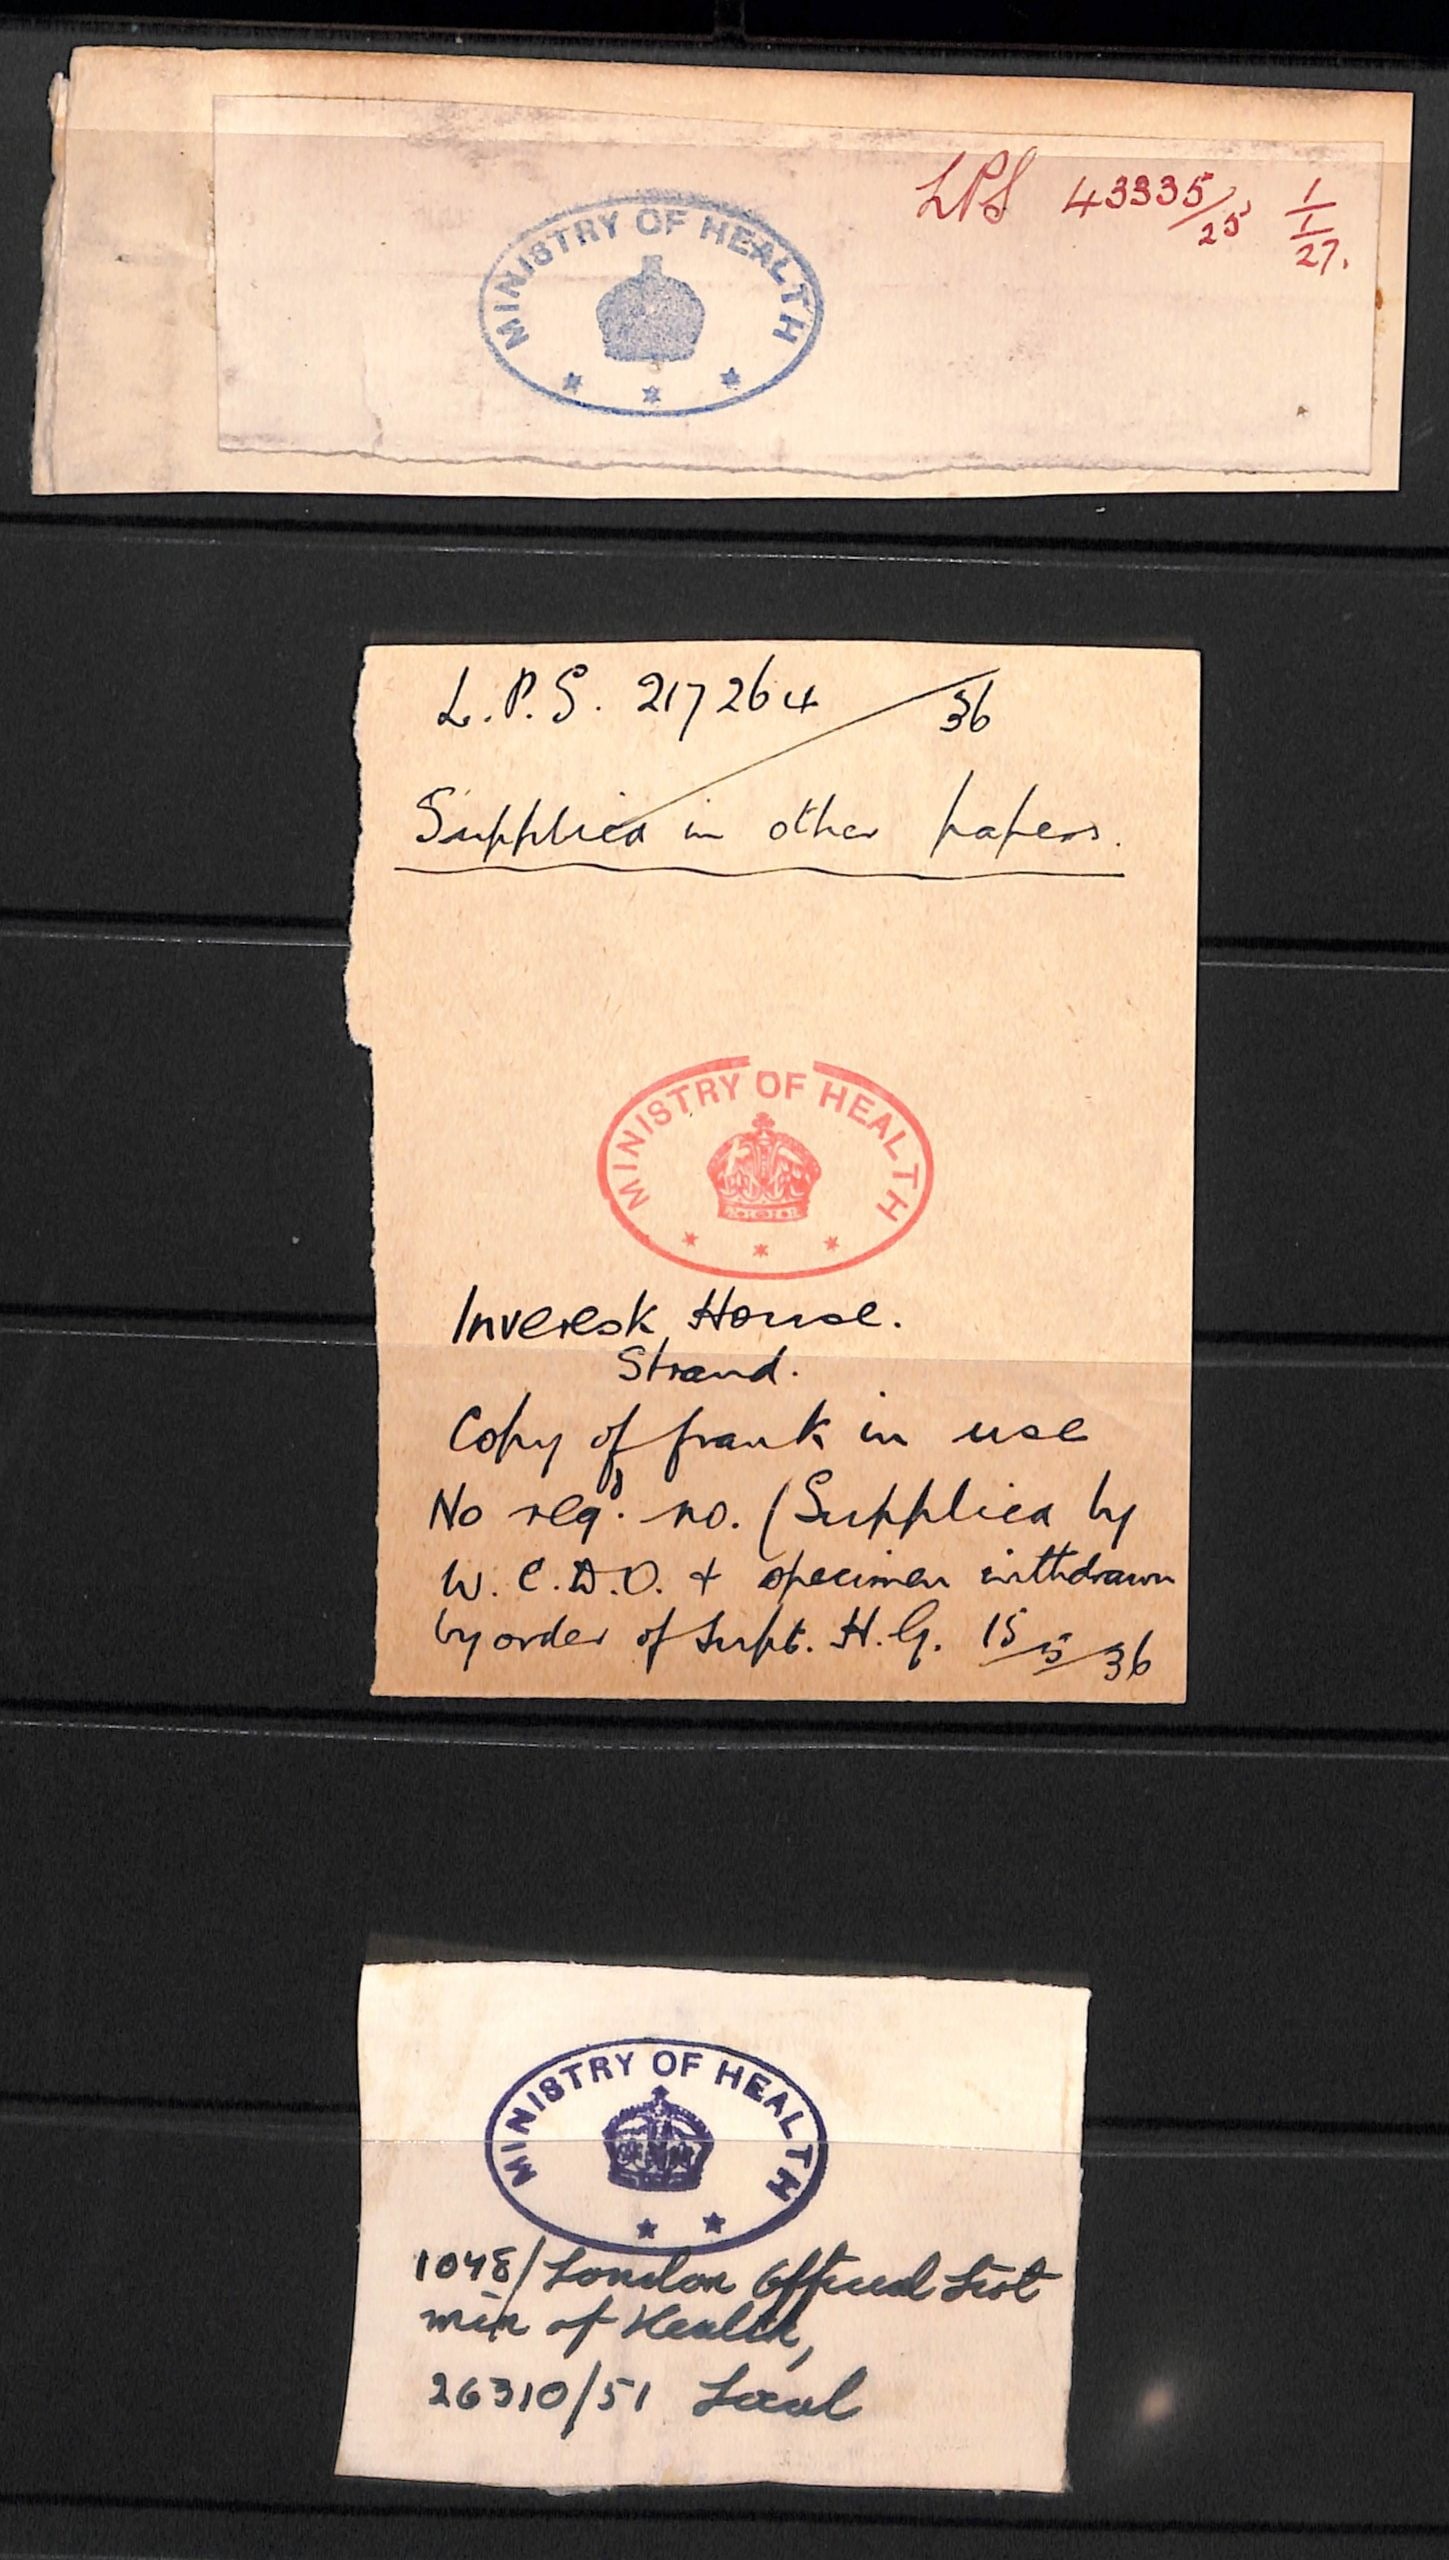 MINISTRY OF HEALTH
LPS 43335/25 1/1/27.
L.P.S. 217264/36
Supplied in other papers.
MINISTRY OF HEALTH
Inveresk House.
Strand.
Copy of frank in use
No regd. no. (Supplied by
W.C.D.O. + specimen withdrawn
by order of Supt. H.G. 15/5/36
MINISTRY OF HEALTH
1048/London Official List
Min of Health,
26310/51 Local